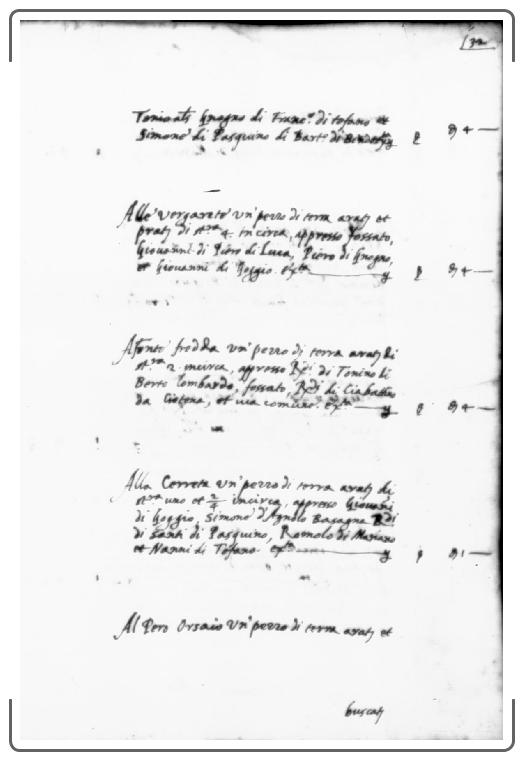 di Franc.º di tofano et
Simone di Pasquino di Bart.º di
Alle Vergarete un' pezzo di terra aratj et
pratj di st.ra 4 in circa, appresso fossato,
Giovanni di Piero di Luca, Piero di Gnogno,
et Giovanni di Goggio.
A fonte fredda un' pezzo di terra aratj di
st.ra 2 incirca, appresso Rdi di Tonino di
Berto lombardo, fossato, Rdi di Ciabattino
da et via comune.
Alla Cerreta un' pezzo di terra aratj di
st.ra uno et 2/4 incirca, appresso Giovanni
di Goggio, Simone d'Agnolo Rdi
di Santi di Pasquino, Romolo di Mariano
et Nanni di Tofano.
Al Pero Orsaio un' pezzo di terra aratj et
buscatj